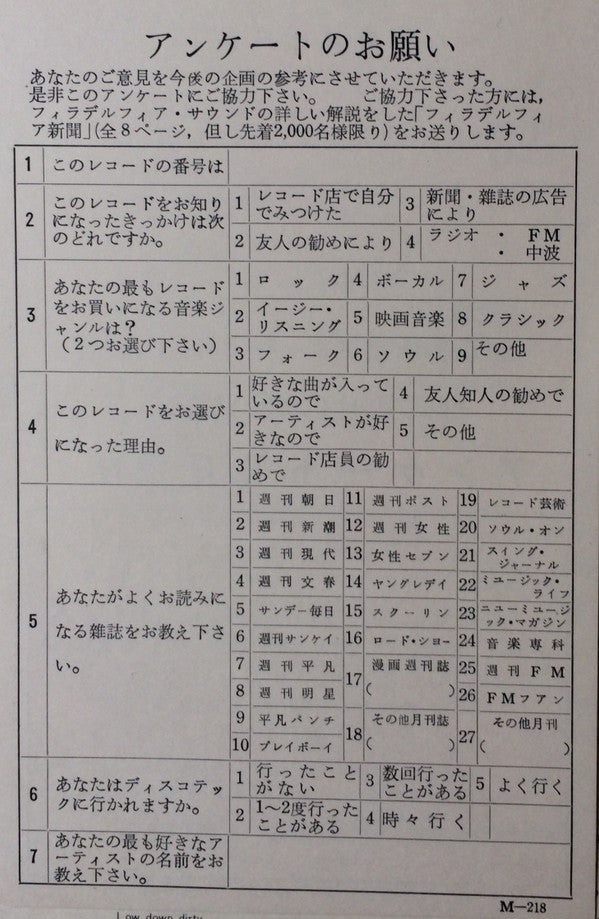 アンケートのお願い
あなたのご意見を今後の企画の参考にさせていただきます。
是非このアンケートにご協力下さい。　　ご協力下さった方には，
フィラデルフィア・サウンドの詳しい解説をした「フィラデルフィ
ア新聞」(全８ページ，但し先着2,000名様限り)をお送りします。
1 このレコードの番号は
2 このレコードをお知り
になったきっかけは次
のどれですか。
1 レコード店で自分
でみつけた
3 新聞・雑誌の広告
により
2 友人の勧めにより
4 ラジオ ・ FM
・ 中波
3 あなたの最もレコード
をお買いになる音楽ジ
ャンルは？
（２つお選び下さい）
1 ロック 4 ボーカル 7 ジャズ
2 イージー・
リスニング
5 映画音楽 8 クラシック
3 フォーク 6 ソウル 9 その他
4 このレコードをお選び
になった理由。
1 好きな曲が入って
いるので
4 友人知人の勧めで
2 アーティストが好
きなので
5 その他
3 レコード店員の勧
めで
5 あなたがよくお読みに
なる雑誌をお教え下さ
い。
1 週刊朝日 11 週刊ポスト 19 レコード芸術
2 週刊新潮 12 週刊女性 20 ソウル・オン
3 週刊現代 13 女性セブン 21 スイング・
ジャーナル
4 週刊文春 14 ヤングレディ 22 ミュージック・
ライフ
5 サンデー毎日 15 スクーリン 23 ニューミュージ
ック・マガジン
6 週刊サンケイ 16 ロード・ショー 24 音楽専科
7 週刊平凡 17 漫画週刊誌
(　　) 25 週刊FM
8 週刊明星 26 FMファン
9 平凡パンチ 18 その他月刊誌
(　　) 27 その他月刊
(　　)
10 プレイボーイ
6 あなたはディスコテッ
クに行かれますか。
1 行ったこと
がない
3 数回行った
ことがある
5 よく行く
2 1〜2度行った
ことがある
4 時々行く
7 あなたの最も好きなア
ーティストの名前をお
教え下さい。
M—218
Low down dirty